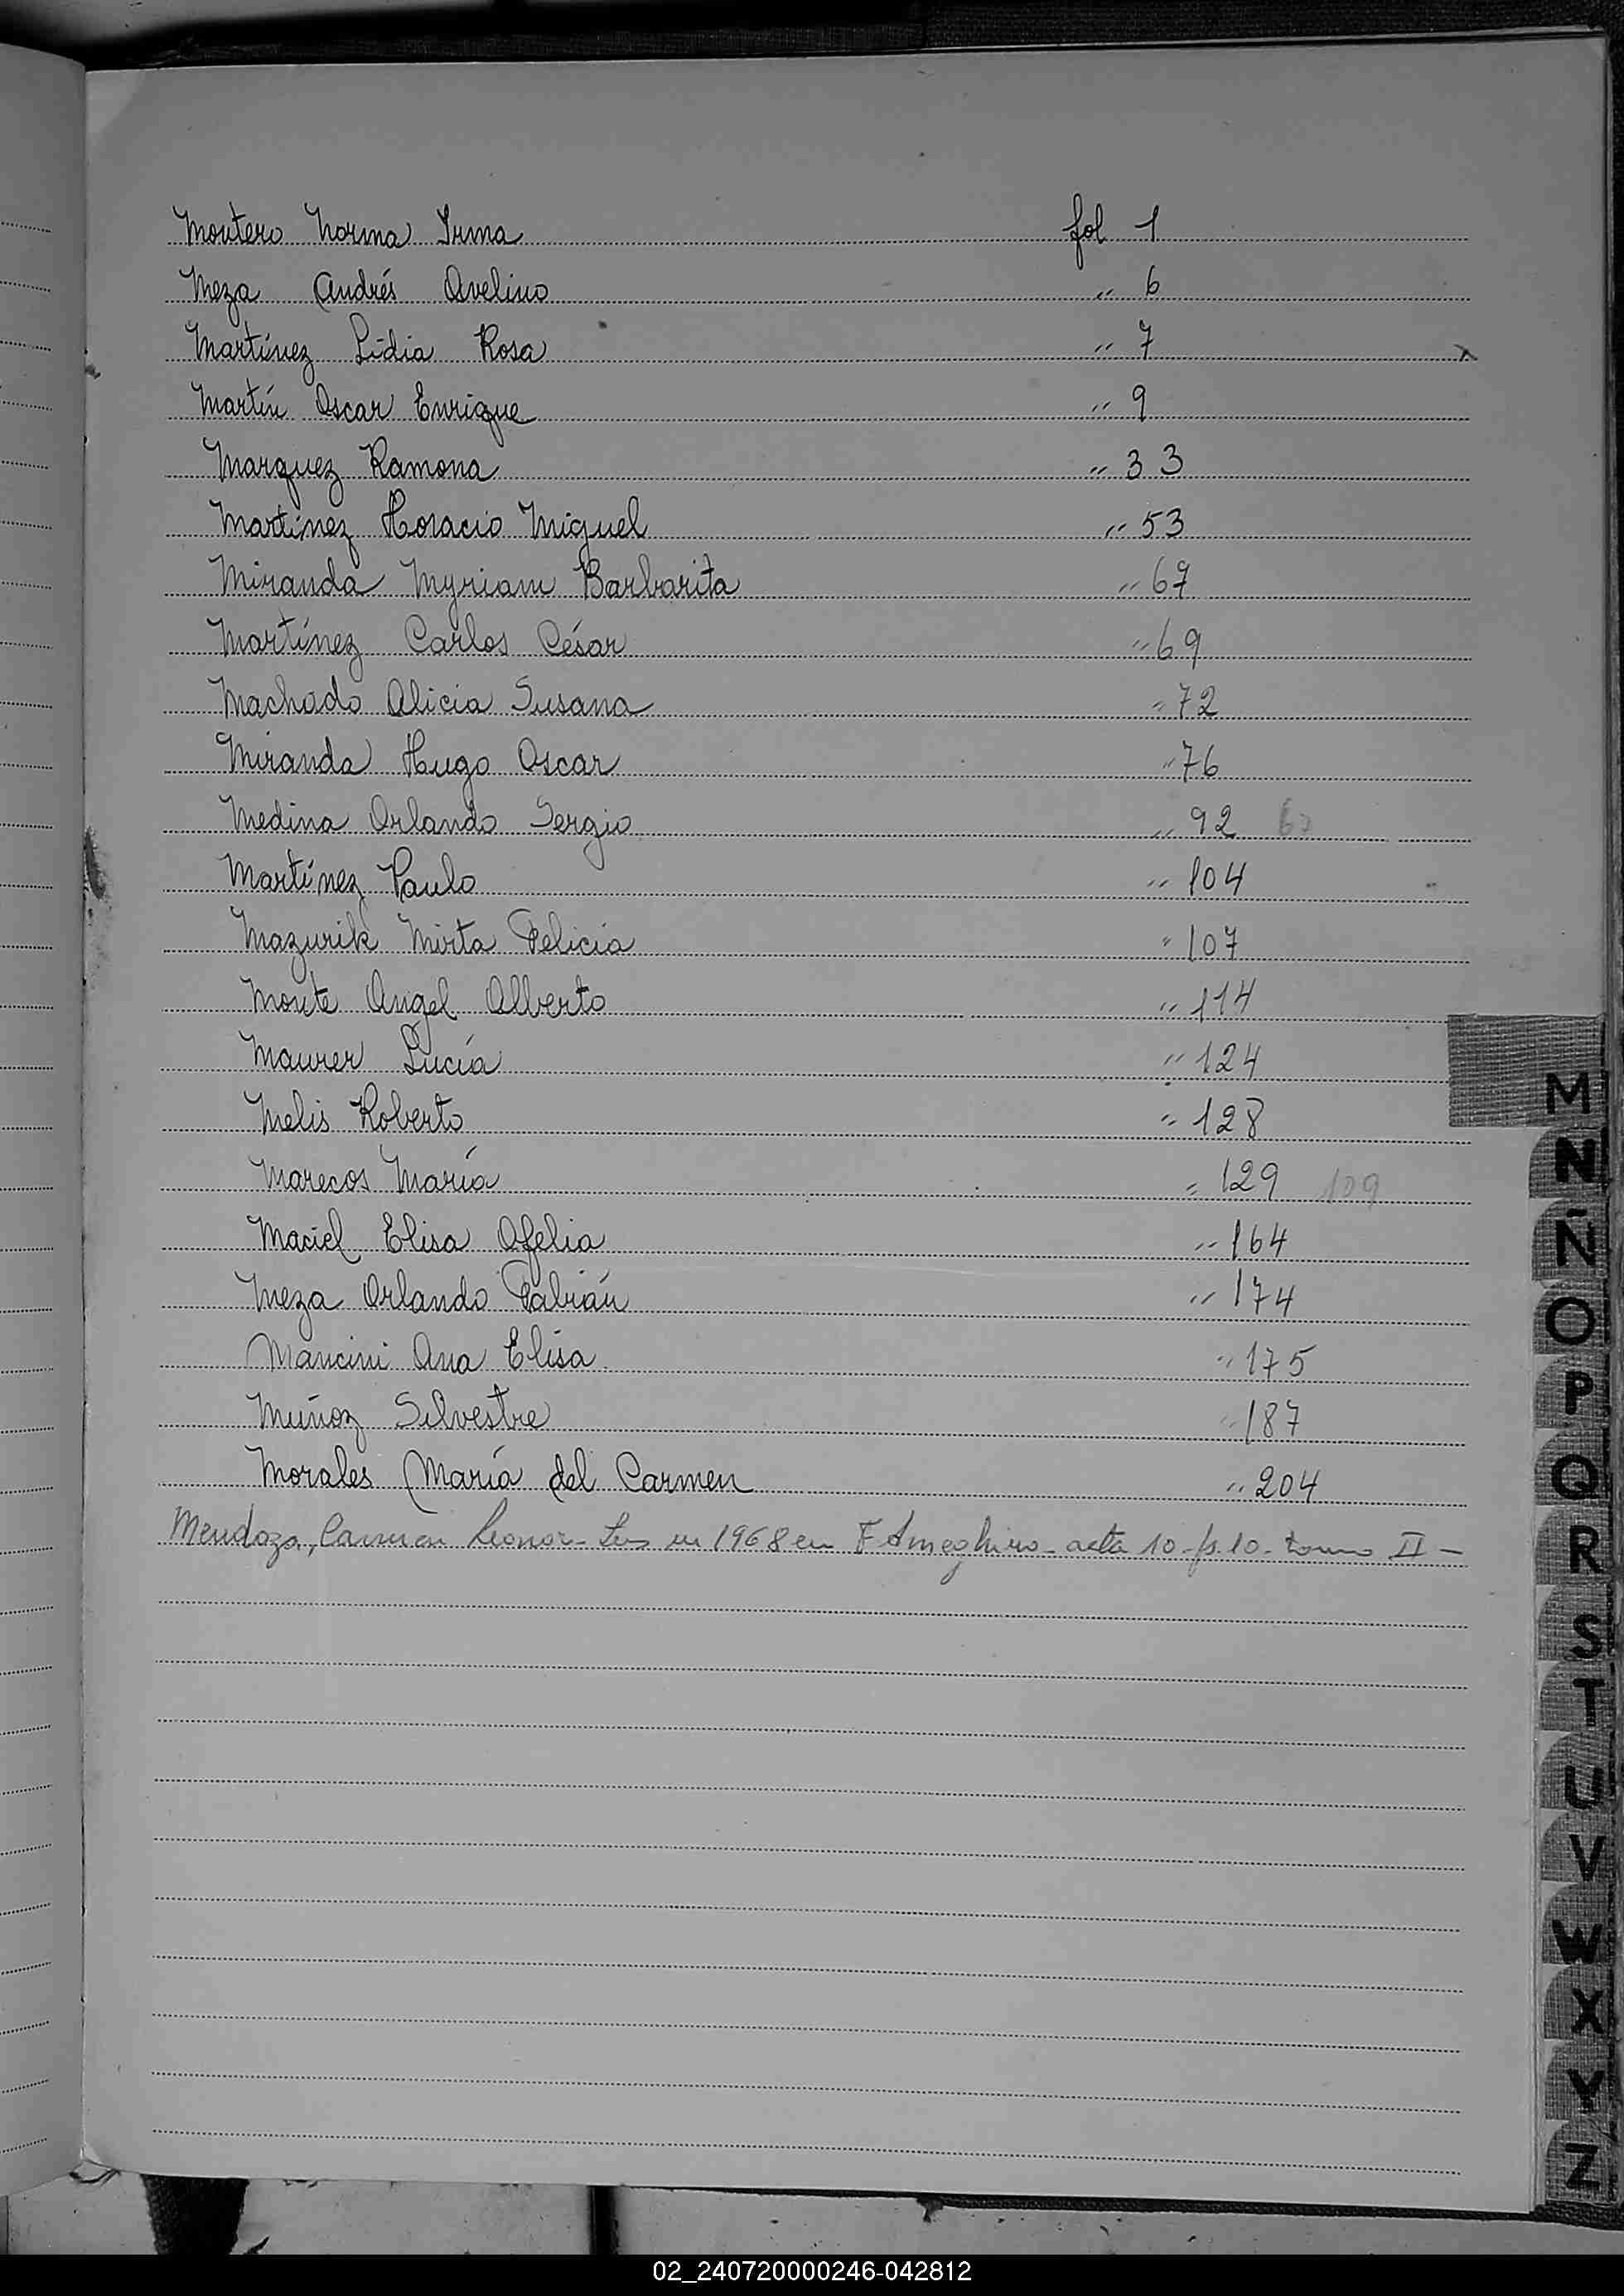 Montero Norma Irma fol 1
Meza Andrés Avelino " 6
Martínez Lidia Rosa " 7 x
Martín Oscar Enrique " 9
Marquez Ramona " 33
Martínez Horacio Miguel " 53
Miranda Myriam Barbarita " 67
Martínez Carlos César " 69
Machado Alicia Susana " 72
Miranda Hugo Oscar " 76
Medina Orlando Sergio " 92
Martínez Paulo " 104
Mazurik Mirta Felicia " 107
Monte Angel Alberto " 114
Maurer Lucía " 124
Melis Roberto " 128
Marecos María " 129 109
Maciel Elisa Ofelia " 164
Meza Orlando Fabián " 174
Mancini Ana Elisa " 175
Muñoz Silvestre " 187
Morales María del Carmen " 204
Mendoza, Carmen Leonor - en 1968 en F Ameghino - acta 10 - fs. 10 - tomo II -
M
N
Ñ
O
P
Q
R
S
T
U
V
W
X
Y
Z
02_240720000246-042812